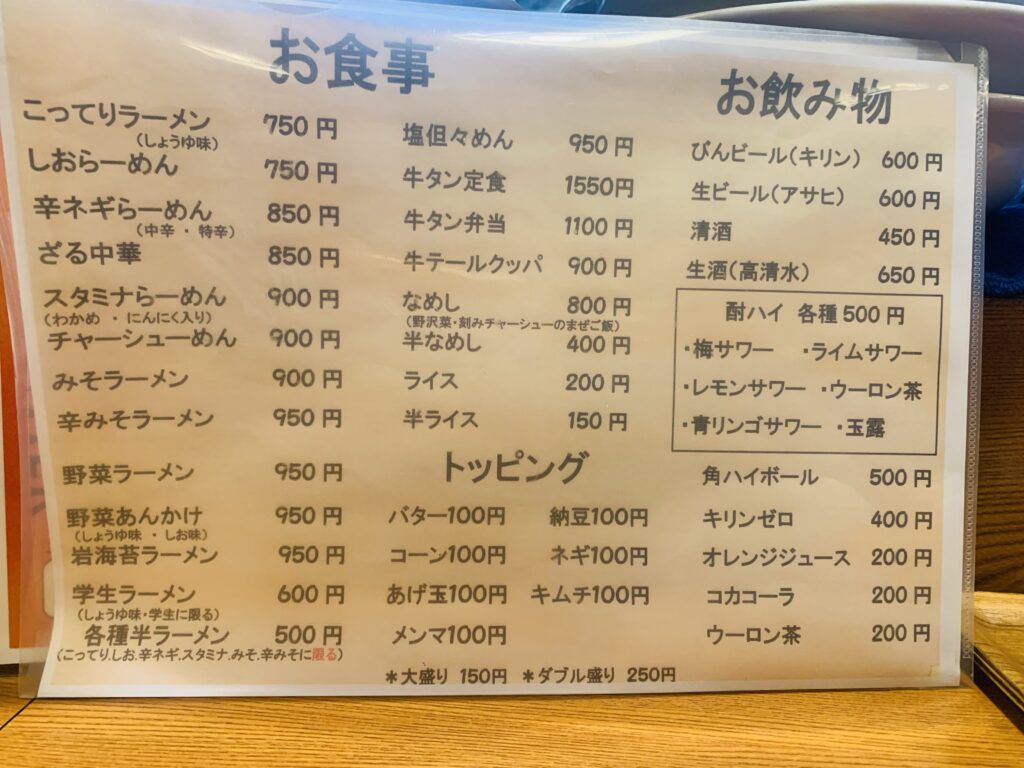 お食事
こってりラーメン 750円
(しょうゆ味)
しおらーめん 750円
辛ネギらーめん 850円
(中辛・特辛)
ざる中華 850円
スタミナらーめん 900円
(わかめ・にんにく入り)
チャーシューめん 900円
みそラーメン 900円
辛みそラーメン 950円
野菜ラーメン 950円
野菜あんかけ 950円
(しょうゆ味・しお味)
岩海苔ラーメン 950円
学生ラーメン 600円
(しょうゆ味・学生に限る)
各種半ラーメン 500円
(こってり.しお.辛ネギ.スタミナ.みそ.辛みそに限る)
塩但々めん 950円
牛タン定食 1550円
牛タン弁当 1100円
牛テールクッパ 900円
なめし 800円
(野沢菜・刻みチャーシューのまぜご飯)
半なめし 400円
ライス 200円
半ライス 150円
トッピング
バター100円 納豆100円
コーン100円 ネギ100円
あげ玉100円 キムチ100円
メンマ100円
*大盛り 150円 *ダブル盛り 250円
お飲み物
びんビール(キリン) 600円
生ビール(アサヒ) 600円
清酒 450円
生酒(高清水) 650円
酎ハイ 各種500円
・梅サワー ・ライムサワー
・レモンサワー ・ウーロン茶
・青リンゴサワー ・玉露
角ハイボール 500円
キリンゼロ 400円
オレンジジュース 200円
コカコーラ 200円
ウーロン茶 200円